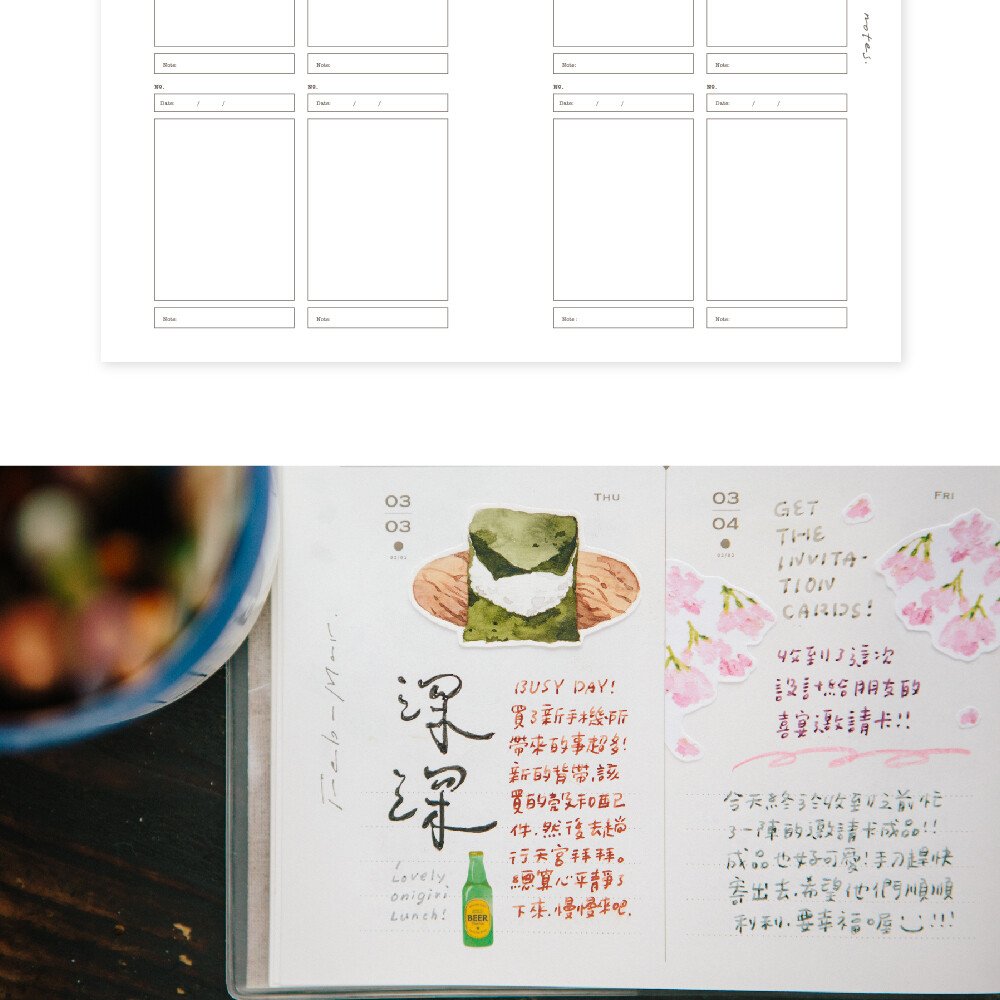 notes.
Note: Note: Note: Note:
No. No. No. No.
Date: / / Date: / / Date: / / Date: / /
Note: Note: Note: Note:
03
03
THU
Feb-Mar
深
深
BUSY DAY!
買了新手機.所
帶來的事超多!
新的背帶,該
買的殼和配
件.然後去趟
行天宮拜拜。
總算心平靜了
下來.慢慢來吧.
Lovely
onigiri
Lunch!
BEER
03
04
FRI
GET
THE
INVITA-
TION
CARDS!
收到了這次
設計給朋友的
喜宴邀請卡!!
今天終於收到了之前忙
了一陣的邀請卡成品!!
成品也好可愛!手刀趕快
寄出去.希望他們順順
利利.要幸福喔!!!